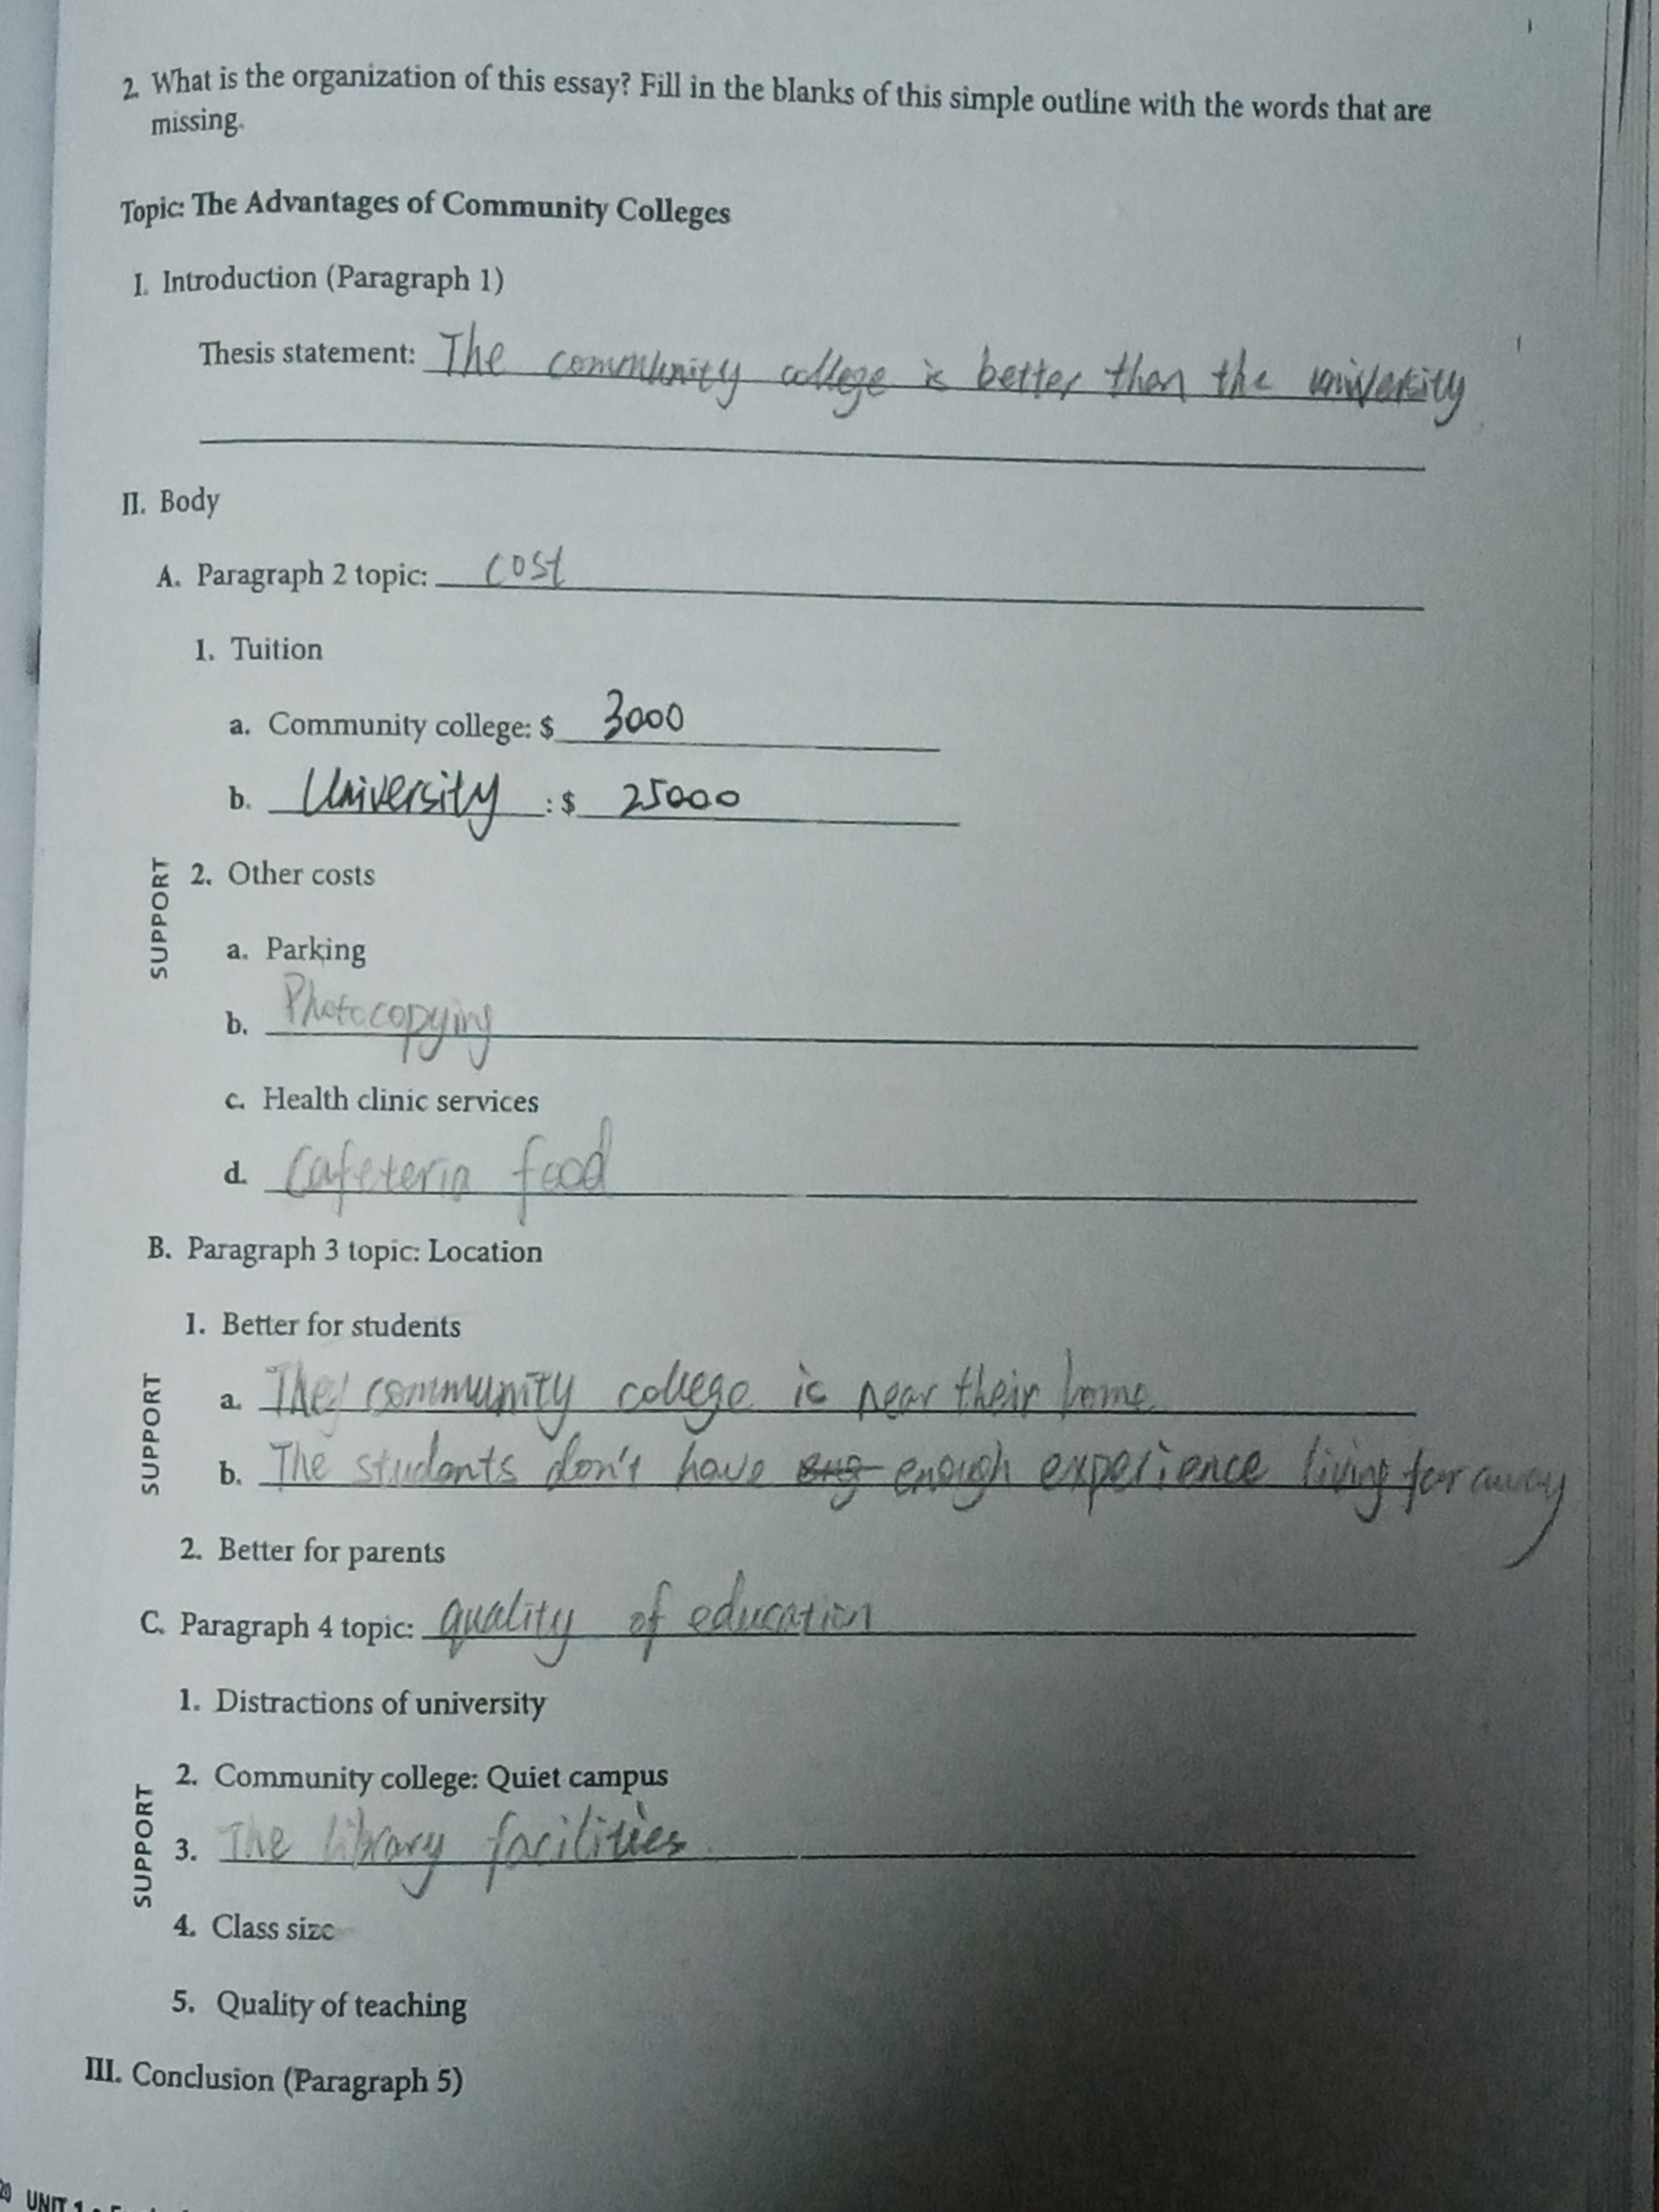 2. What is the organization of this essay? Fill in the blanks of this simple outline with the words that are
missing.
Topic: The Advantages of Community Colleges
I. Introduction (Paragraph 1)
Thesis statement: The community college is better than the university
II. Body
A. Paragraph 2 topic: cost
1. Tuition
a. Community college: $ 3000
b. University : $ 25000
SUPPORT
2. Other costs
a. Parking
b. Photocopying
c. Health clinic services
d. Cafeteria food
B. Paragraph 3 topic: Location
1. Better for students
SUPPORT
a. They community college is near their home
b. The students don't have enough experience living far away
2. Better for parents
C. Paragraph 4 topic: quality of education
1. Distractions of university
2. Community college: Quiet campus
SUPPORT
3. The library facilities.
4. Class size
5. Quality of teaching
III. Conclusion (Paragraph 5)
UNIT 1